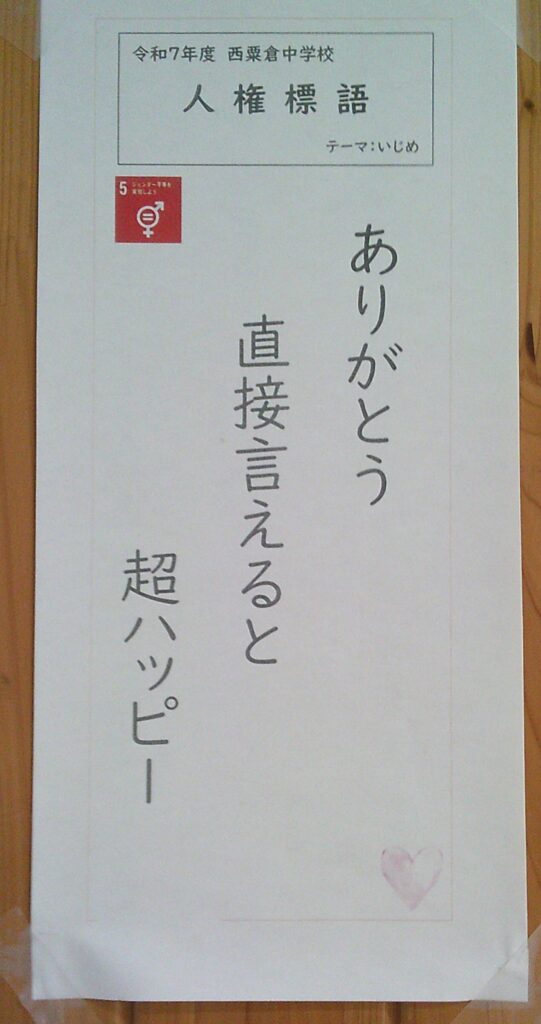 令和7年度 西粟倉中学校
人権標語
テーマ：いじめ
5 ジェンダー平等を
実現しよう
ありがとう
直接言えると
超ハッピー